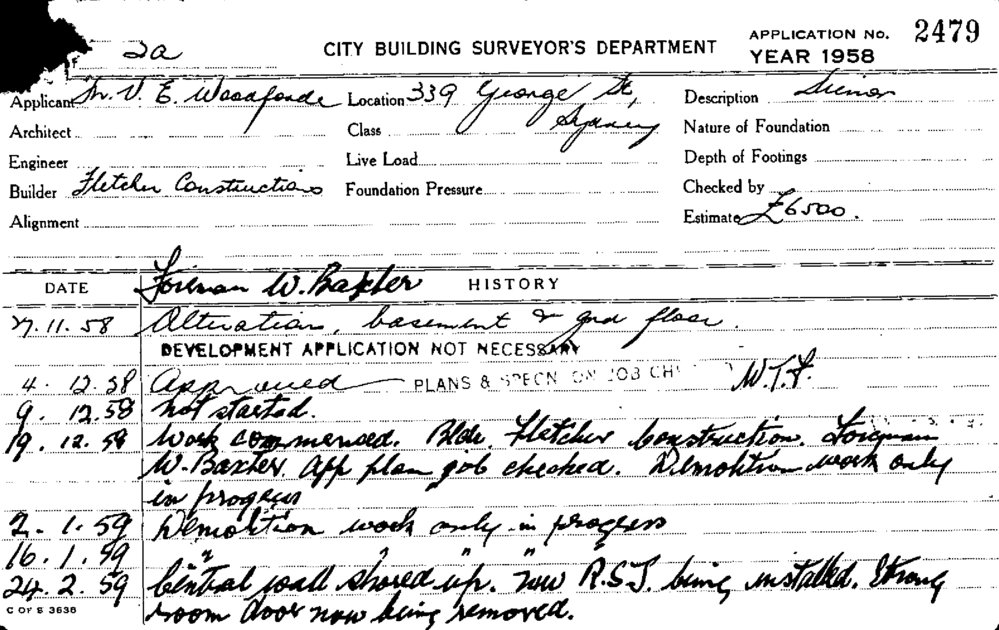 2a CITY BUILDING SURVEYOR'S DEPARTMENT APPLICATION No. 2479
YEAR 1958
Applicant Mr. V. E. Woodforde Location 339 George St, Sydney Description
Architect Class Nature of Foundation
Engineer Live Load Depth of Footings
Builder Fletcher Constructions Foundation Pressure Checked by
Alignment Estimate £6500.
Foreman W. Baxter
DATE HISTORY
27.11.58 Alteration, basement & grd floor.
DEVELOPMENT APPLICATION NOT NECESSARY
4. 12.58 Approved PLANS & SPECN ON JOB W.T.F.
9. 12.58 not started.
19. 12. 58 Work commenced. Bldr. Fletcher Construction. Foreman
W. Baxter. App plan job checked. Demolition work only
in progress
2. 1. 59 Demolition work only in progress
16. 1. 59 " " " "
24. 2. 59 Central wall shored up. new R.S.J. being installed. Strong
room door now being removed.
C OF S 3636